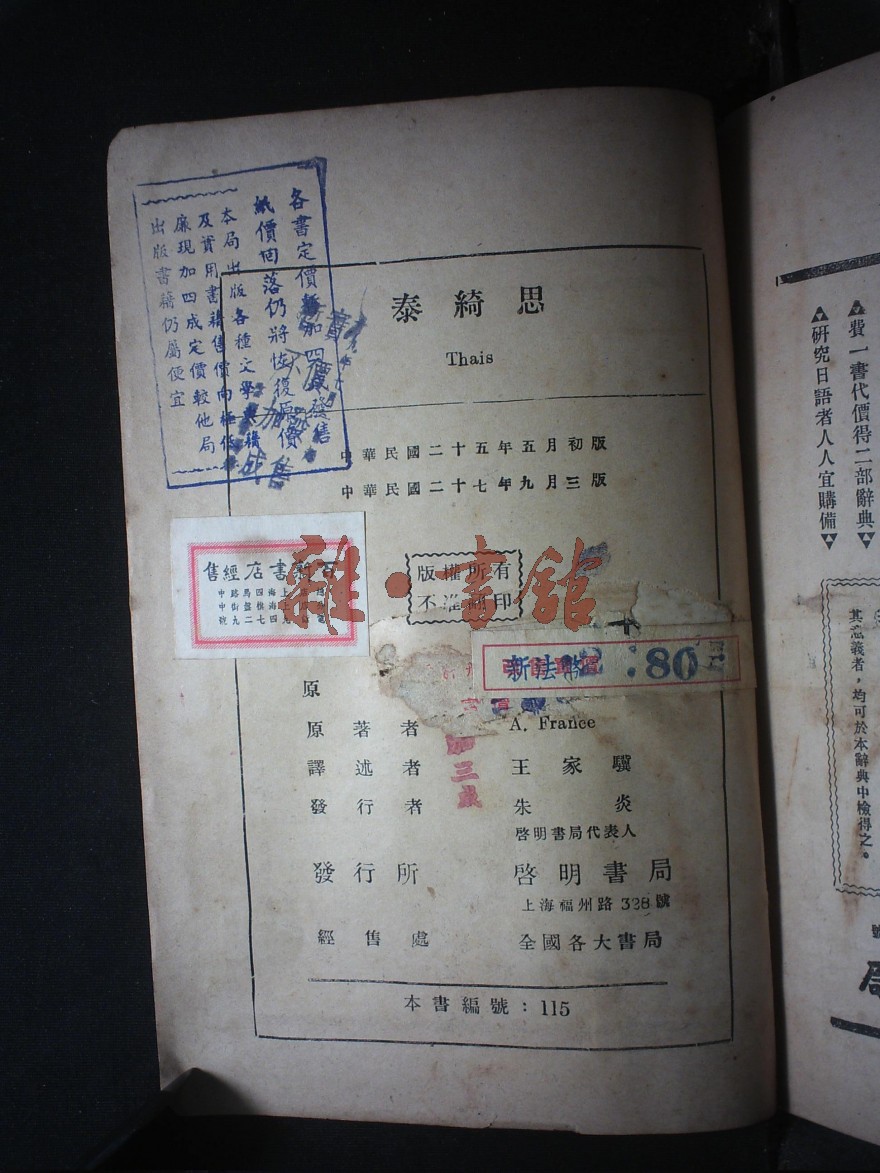 泰綺思
Thais
中華民國二十五年五月初版
中華民國二十七年九月三版
版權所有
不准翻印
原
原著者 A. France
譯述者 王家驥
發行者 朱炎
啓明書局代表人
發行所 啓明書局
上海福州路328號
經售處 全國各大書局
本書編號：115
各書定價暫加四成發售
紙價回落仍將恢復原價
本局出版各種文學書籍
及實用書籍售價向極低
廉現加四成定價較他局
出版書籍仍屬便宜
書店經售
新法幣 :80
加三成
雜·書館
▲費一書代價得二部辭典▼
▲研究日語者人人宜購備▼
其意義者，均可於本辭典中檢得之。